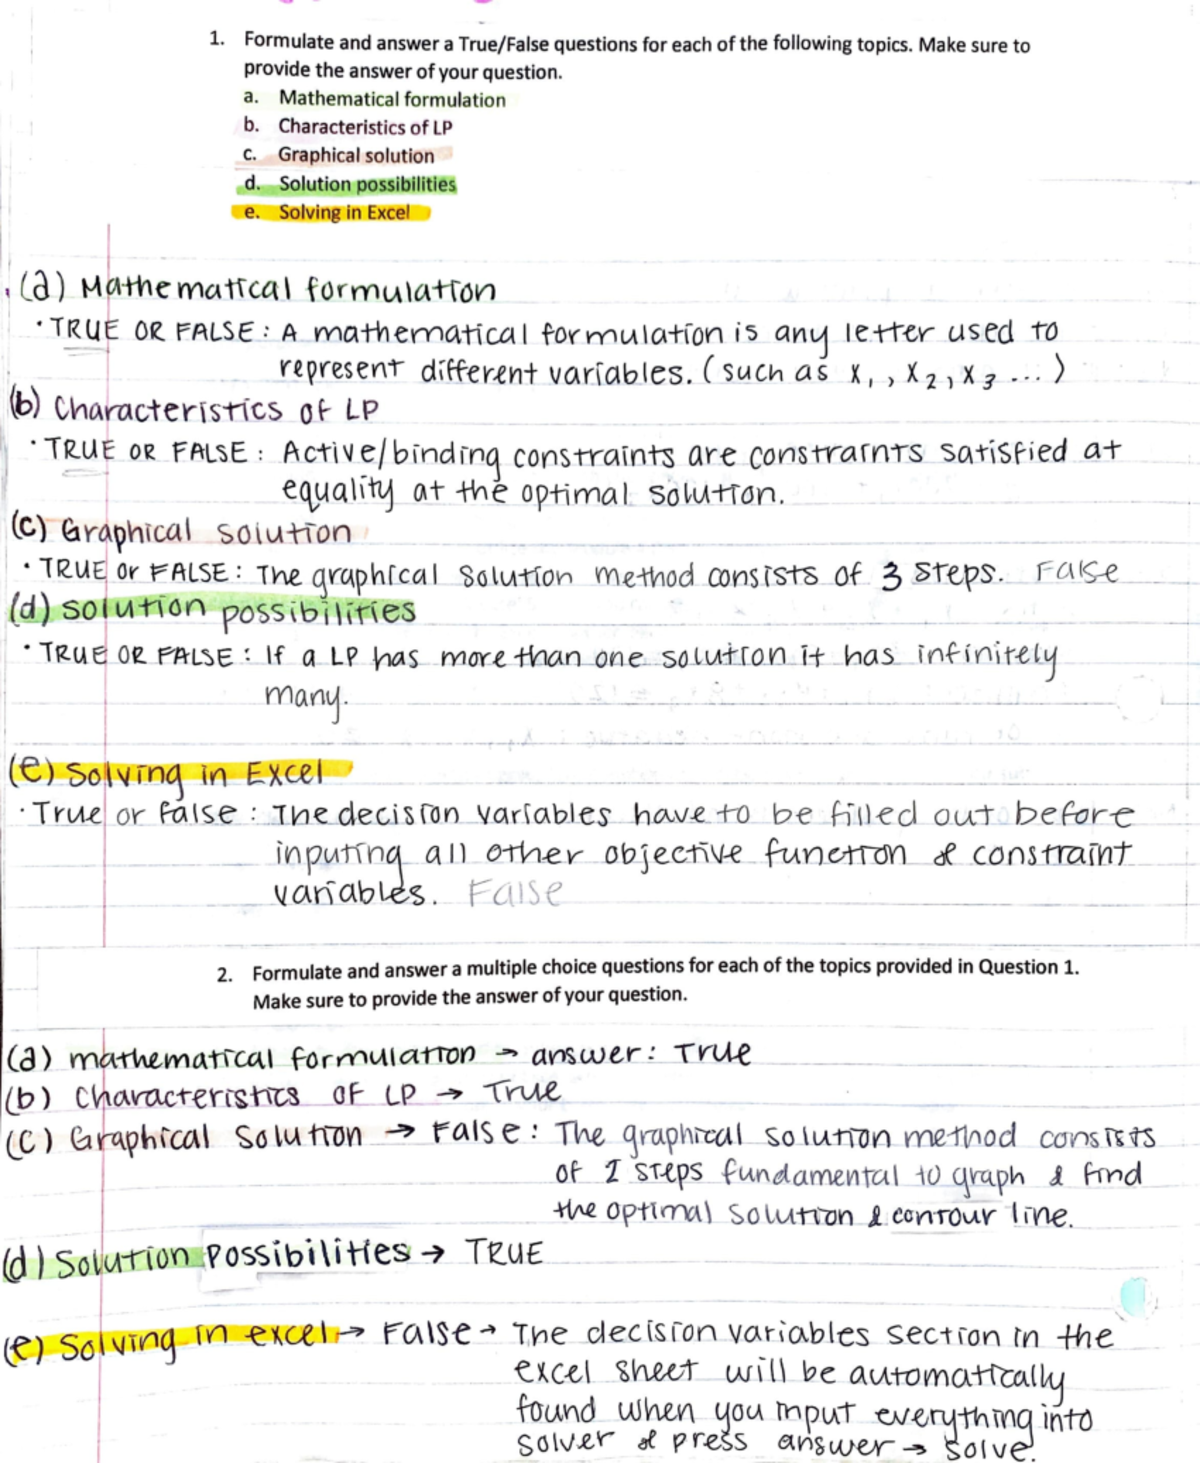 1. Formulate and answer a True/False questions for each of the following topics. Make sure to
provide the answer of your question.
a. Mathematical formulation
b. Characteristics of LP
c. Graphical solution
d. Solution possibilities
e. Solving in Excel
(a) Mathematical formulation
· TRUE OR FALSE : A mathematical formulation is any letter used to
represent different variables. (such as x₁, , x₂, x₃ ... )
(b) Characteristics of LP
· TRUE OR FALSE : Active/binding constraints are constraints satisfied at
equality at the optimal solution.
(c) Graphical solution
· TRUE or FALSE : The graphical solution method consists of 3 steps. False
(d) solution possibilities
· TRUE OR FALSE : If a LP has more than one solution it has infinitely
many.
(e) Solving in Excel
· True or false : The decision variables have to be filled out before
inputing all other objective function & constraint
variables. False
2. Formulate and answer a multiple choice questions for each of the topics provided in Question 1.
Make sure to provide the answer of your question.
(a) mathematical formulation → answer: True
(b) Characteristics of LP → True
(c) Graphical Solution → False: The graphical solution method consists
of steps fundamental to graph & find
the optimal solution & contour line.
(d) Solution Possibilities → TRUE
(e) Solving in excel → False → The decision variables section in the
excel sheet will be automatically
found when you input everything into
solver & press answer → solve.